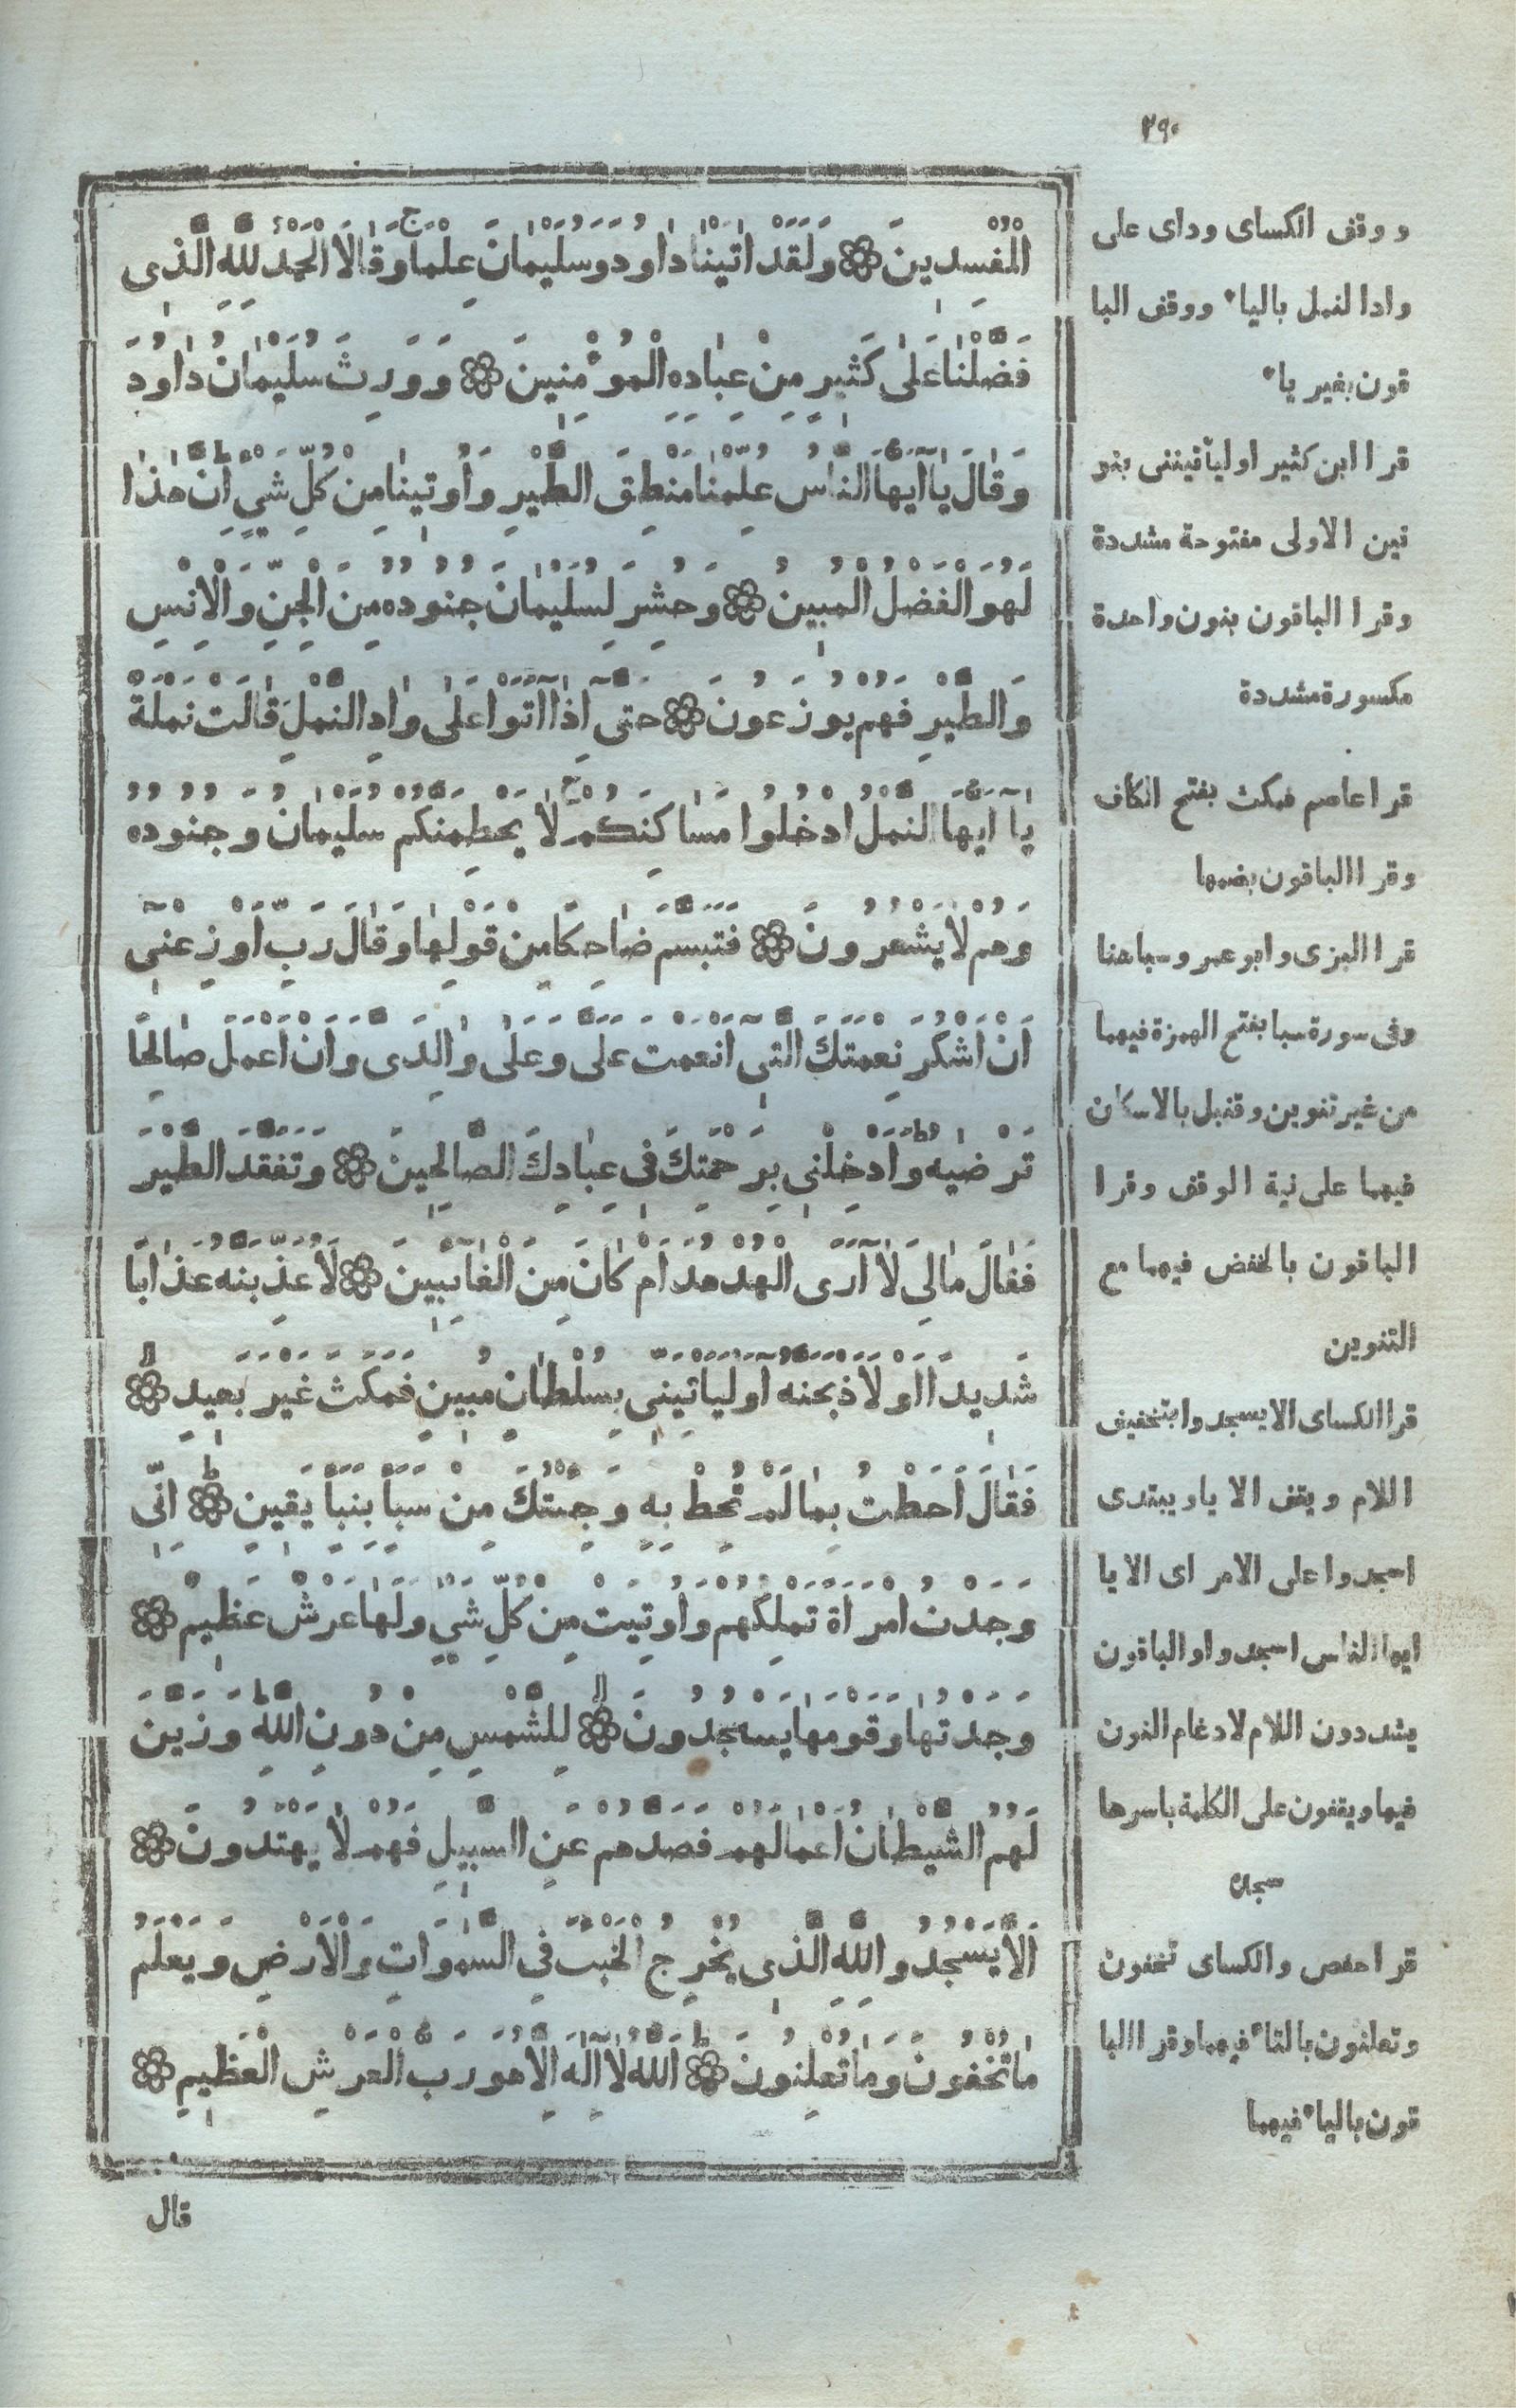 ٢٩٠
الْمُفْسِدِينَ ۞ وَلَقَدْ اٰتَيْنٰا دٰاوُدَ وَسُلَيْمٰانَ عِلْمًا وَقٰالَا الْحَمْدُ لِلّٰهِ الَّذِى
فَضَّلْنٰا عَلٰى كَثِيرٍ مِنْ عِبٰادِهِ الْمُؤْمِنِينَ ۞ وَوَرِثَ سُلَيْمٰانُ دٰاوُدَ
وَقٰالَ يٰا اَيُّهَا النّٰاسُ عُلِّمْنٰا مَنْطِقَ الطَّيْرِ وَاُوتِينٰا مِنْ كُلِّ شَيْءٍ اِنَّ هٰذٰا
لَهُوَ الْفَضْلُ الْمُبِينُ ۞ وَحُشِرَ لِسُلَيْمٰانَ جُنُودُهُ مِنَ الْجِنِّ وَالْاِنْسِ
وَالطَّيْرِ فَهُمْ يُوزَعُونَ ۞ حَتّٰى اِذٰا اَتَوْا عَلٰى وٰادِ النَّمْلِ قٰالَتْ نَمْلَةٌ
يٰا اَيُّهَا النَّمْلُ ادْخُلُوا مَسٰاكِنَكُمْ لٰا يَحْطِمَنَّكُمْ سُلَيْمٰانُ وَجُنُودُهُ
وَهُمْ لٰا يَشْعُرُونَ ۞ فَتَبَسَّمَ ضٰاحِكًا مِنْ قَوْلِهٰا وَقٰالَ رَبِّ اَوْزِعْنِى
اَنْ اَشْكُرَ نِعْمَتَكَ الَّتِى اَنْعَمْتَ عَلَىَّ وَعَلٰى وٰالِدَىَّ وَاَنْ اَعْمَلَ صٰالِحًا
تَرْضٰيهُ وَاَدْخِلْنِى بِرَحْمَتِكَ فِى عِبٰادِكَ الصّٰالِحِينَ ۞ وَتَفَقَّدَ الطَّيْرَ
فَقٰالَ مٰا لِىَ لٰا اَرَى الْهُدْهُدَ اَمْ كٰانَ مِنَ الْغٰائِبِينَ ۞ لَاُعَذِّبَنَّهُ عَذٰابًا
شَدِيدًا اَوْ لَاَذْبَحَنَّهُ اَوْ لَيَأْتِيَنِّى بِسُلْطٰانٍ مُبِينٍ فَمَكَثَ غَيْرَ بَعِيدٍ ۞
فَقٰالَ اَحَطْتُ بِمٰا لَمْ تُحِطْ بِهِ وَجِئْتُكَ مِنْ سَبَأٍ بِنَبَأٍ يَقِينٍ ۞ اِنِّى
وَجَدْتُ امْرَاَةً تَمْلِكُهُمْ وَاُوتِيَتْ مِنْ كُلِّ شَيْءٍ وَلَهٰا عَرْشٌ عَظِيمٌ ۞
وَجَدْتُهٰا وَقَوْمَهٰا يَسْجُدُونَ ۞ لِلشَّمْسِ مِنْ دُونِ اللّٰهِ وَزَيَّنَ
لَهُمُ الشَّيْطٰانُ اَعْمٰالَهُمْ فَصَدَّهُمْ عَنِ السَّبِيلِ فَهُمْ لٰا يَهْتَدُونَ ۞
اَلَّا يَسْجُدُوا لِلّٰهِ الَّذِى يُخْرِجُ الْخَبْءَ فِى السَّمٰوَاتِ وَالْاَرْضِ وَيَعْلَمُ
مٰا تُخْفُونَ وَمٰا تُعْلِنُونَ ۞ اَللّٰهُ لٰا اِلٰهَ اِلَّا هُوَ رَبُّ الْعَرْشِ الْعَظِيمِ ۞
قال
ووقف الكساى وداى على
وادا لنمل باليا ووقف البا
قون بغير يا
قرا ابن كثير اولياتيننى بنو
نين الاولى مفتوحة مشددة
وقرا الباقون بنون واحدة
مكسورة مشددة
قرا عاصم فمكث بفتح الكاف
وقرا الباقون بضمها
قرا البزى وابو عمرو سبا هنا
وفى سورة سبا بفتح الهمزة فيهما
من غير تنوين وقنبل بالاسكان
فيهما على نية الوقف وقرا
الباقون بالخفض فيهما مع
التنوين
قرا الكساى الا يسجدوا بتخفيف
اللام ويقف الا يا ويبتدى
اسجدوا على الامر اى الا يا
ايها الناس اسجدوا والباقون
يشددون اللام لادغام النون
فيها ويقفون على الكلمة باسرها
سجدة
قرا حفص والكساى تخفون
وتعلنون بالتا فيهما وقرا البا
قون باليا فيهما